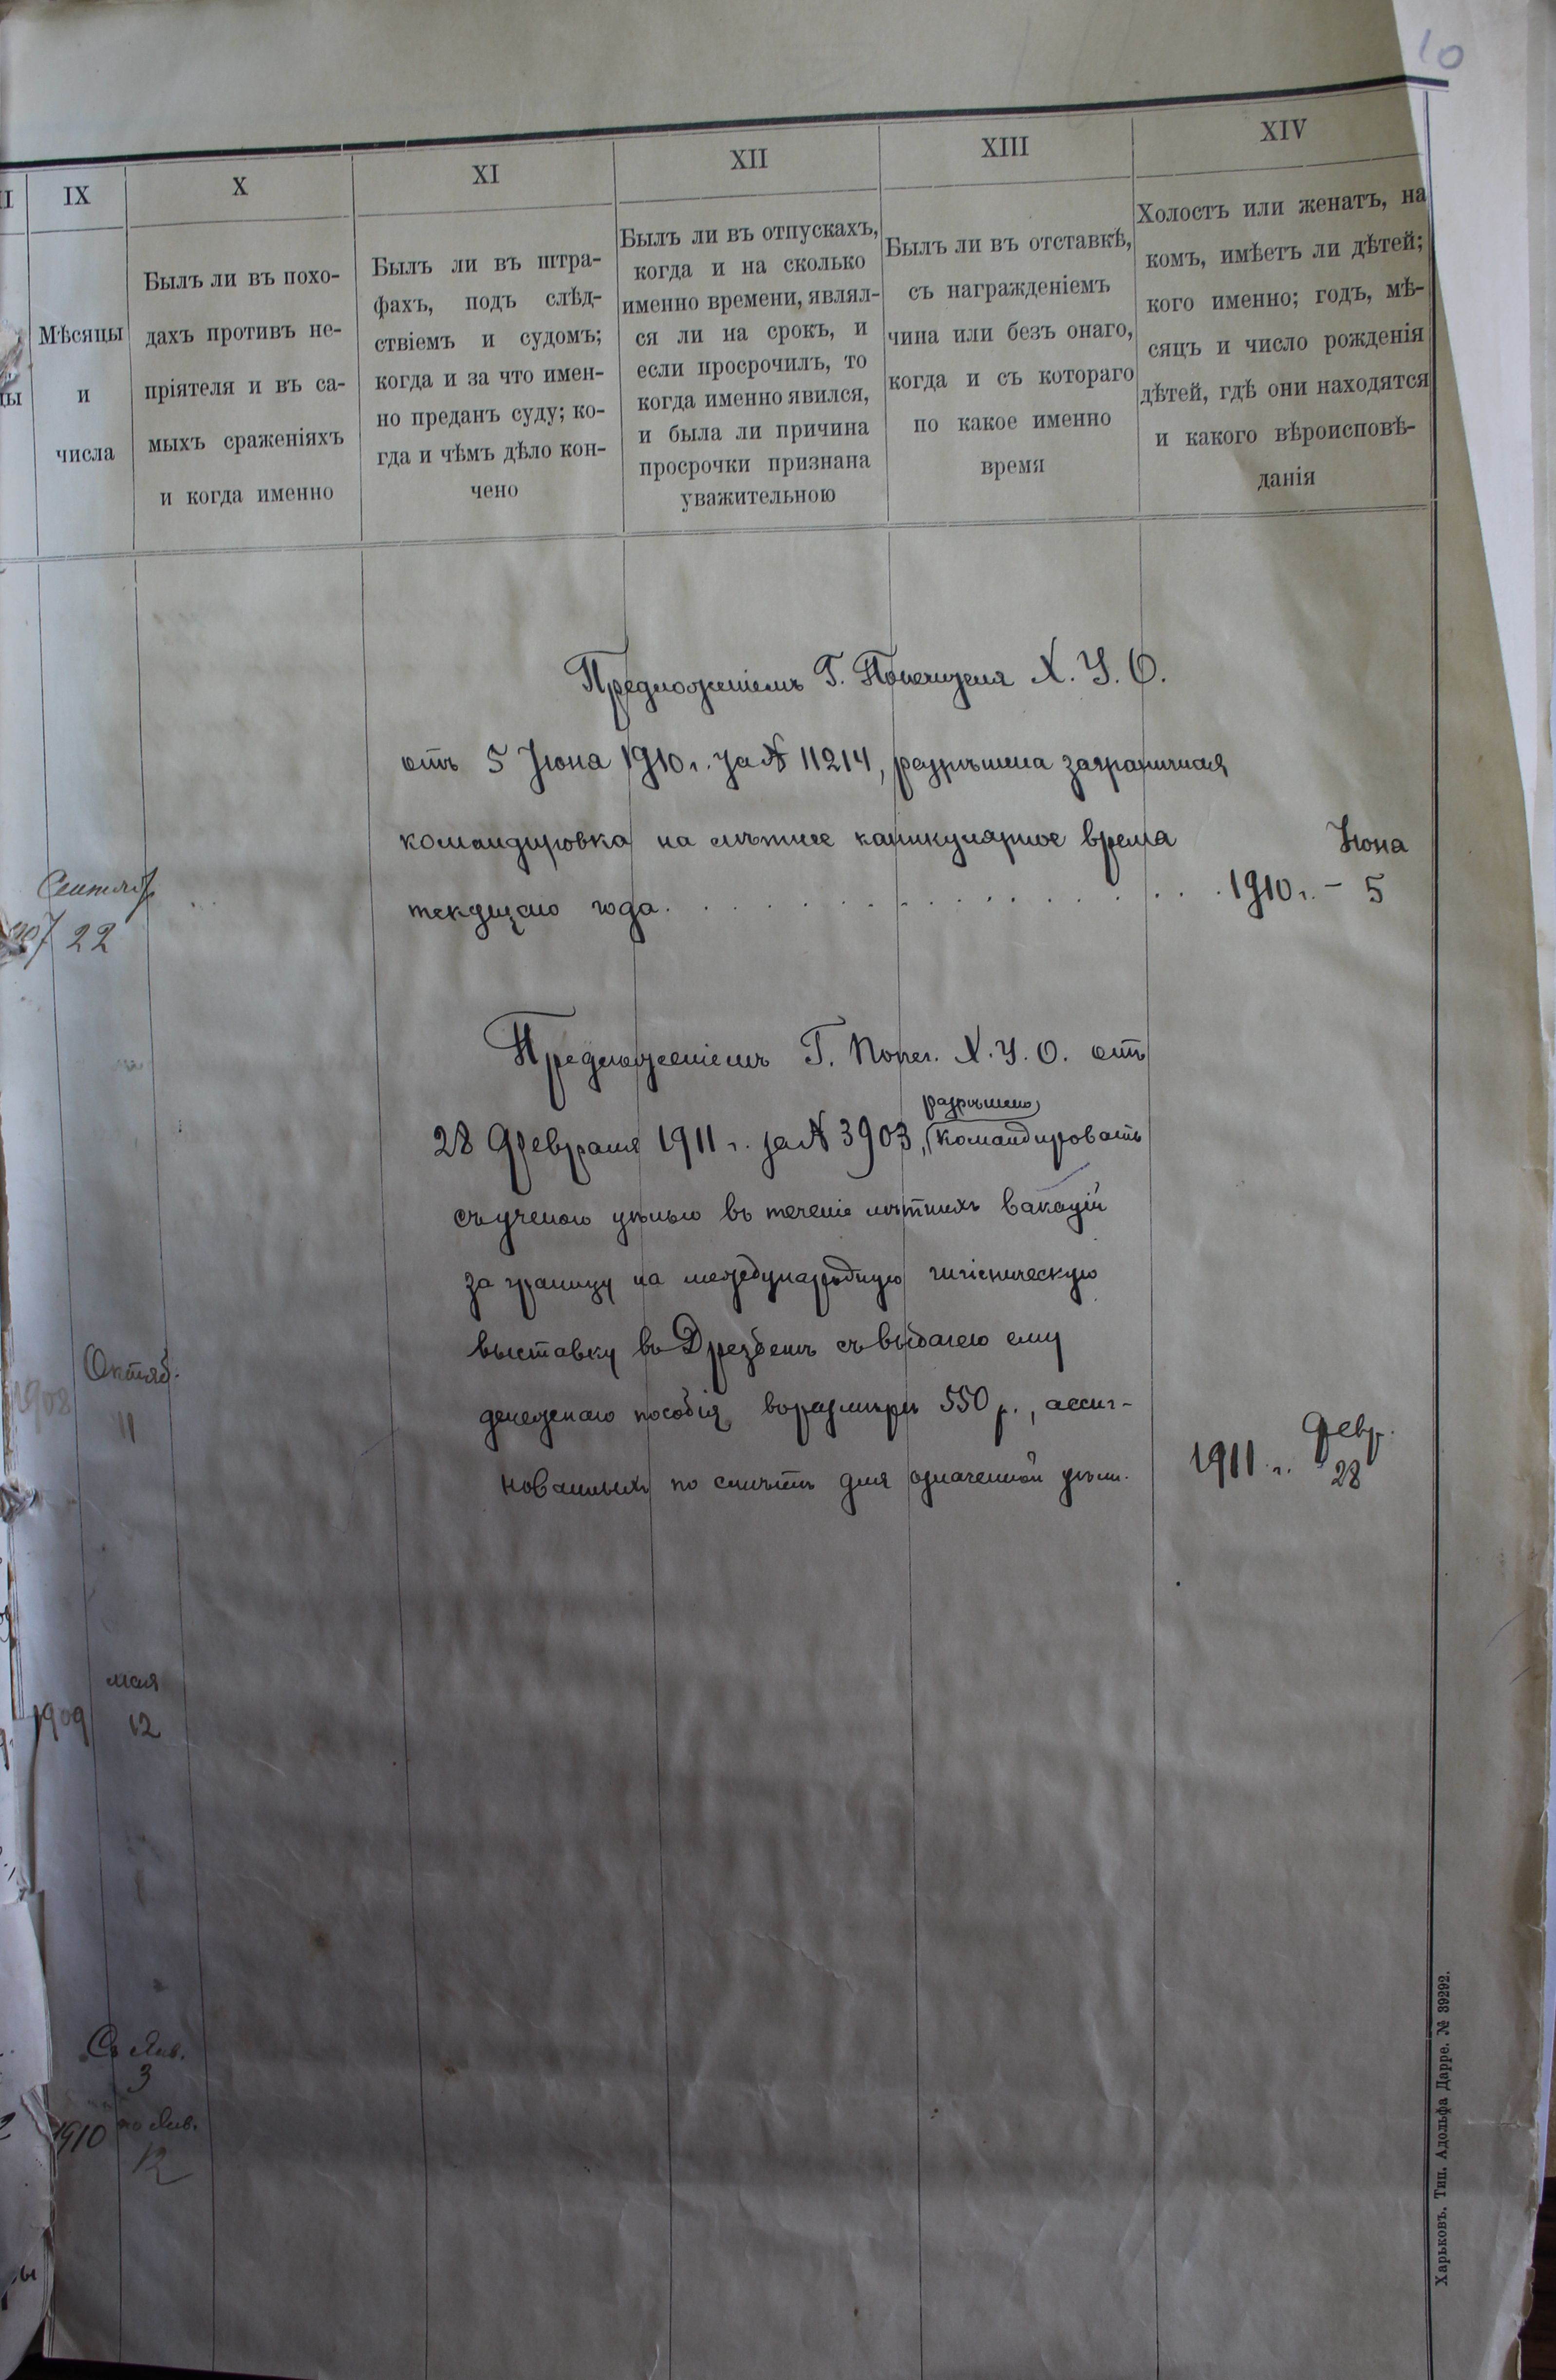 10
II
IX
X
XI
XII
XIII
XIV
Мѣсяцы
и
числа
Былъ ли въ похо-
дахъ противъ не-
пріятеля и въ са-
мыхъ сраженіяхъ
и когда именно
Былъ ли въ штра-
фахъ, подъ слѣд-
ствіемъ и судомъ;
когда и за что имен-
но преданъ суду; ко-
гда и чѣмъ дѣло кон-
чено
Былъ ли въ отпускахъ,
когда и на сколько
именно времени, являл-
ся ли на срокъ, и
если просрочилъ, то
когда именно явился,
и была ли причина
просрочки признана
уважительною
Былъ ли въ отставкѣ,
съ награжденіемъ
чина или безъ онаго,
когда и съ котораго
по какое именно
время
Холостъ или женатъ, на
комъ, имѣетъ ли дѣтей;
кого именно; годъ, мѣ-
сяцъ и число рожденія
дѣтей, гдѣ они находятся
и какого вѣроисповѣ-
данія
Предложеніемъ Г. Попечителя Х. У. О.
отъ 5 Іюна 1910 г. за № 11214, разрѣшена заграничная
командировка на лѣтнее каникулярное время
текущаго года. . . . . . . . . . . . . . 1910 г. – Іюна 5
Сентяб.
22
Предложеніемъ Г. Попеч. Х. У. О. отъ
28 Февраля 1911 г. за № 3903, разрѣшено командировать
съ ученою цѣлью въ теченіе лѣтнихъ вакацій
за границу на международную гигіеническую
выставку въ Дрезденѣ съ выдачею ему
денежнаго пособія въ размѣрѣ 550 р., ассиг-
нованныхъ по смѣтѣ для означенной цѣли.
1911 г. Февр. 28
Октяб.
1908 11
мая
1909 12
Съ Янв.
3
1910 по Янв.
12
Харьковъ. Тип. Адольфа Дарре. № 39292.